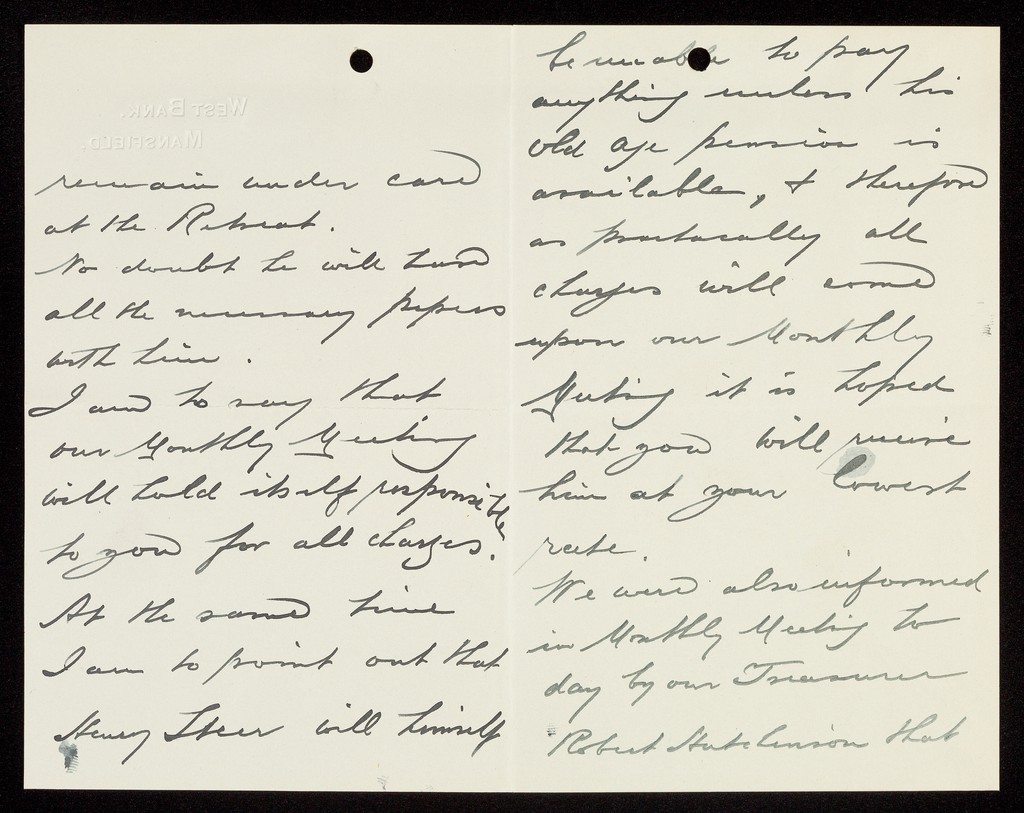 WEST BANK.
MANSFIELD.
remain under care
at the Retreat.
No doubt he will have
all the necessary papers
with him.
I am to say that
our Monthly Meeting
will hold itself responsible
to you for all charges.
At the same time
I am to point out that
Henry Steer will himself
be unable to pay
anything unless his
old age pension is
available, & therefore
as practically all
charges will come
upon our Monthly
Meeting it is hoped
that you will receive
him at your lowest
rate.
We were also informed
in Monthly Meeting to
day by our Treasurer
Robert Hutchinson that